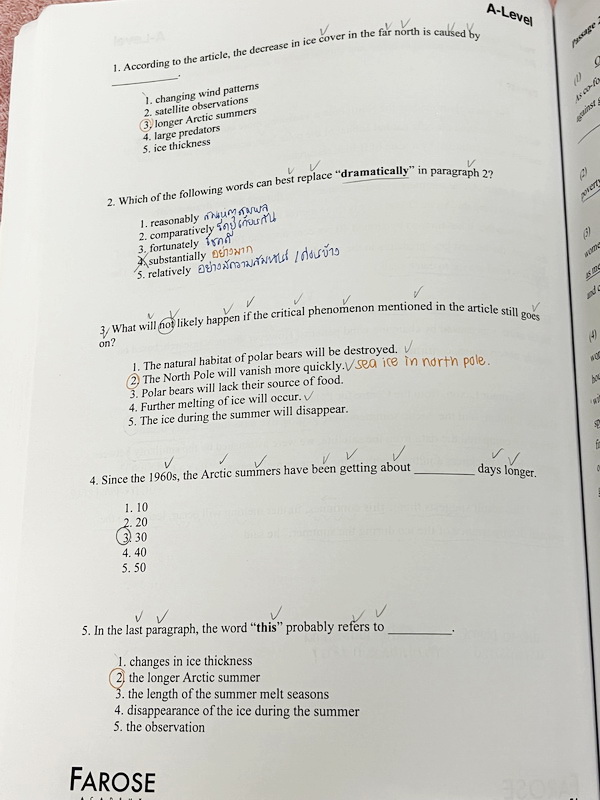 A-Level
1. According to the article, the decrease in ice cover in the far north is caused by
__________.
1. changing wind patterns
2. satellite observations
3. longer Arctic summers
4. large predators
5. ice thickness
2. Which of the following words can best replace “dramatically” in paragraph 2?
1. reasonably สมเหตุสมผล
2. comparatively
3. fortunately โชคดี
4. substantially อย่างมาก
5. relatively
3. What will not likely happen if the critical phenomenon mentioned in the article still goes
on?
1. The natural habitat of polar bears will be destroyed.
2. The North Pole will vanish more quickly. sea ice in north pole.
3. Polar bears will lack their source of food.
4. Further melting of ice will occur.
5. The ice during the summer will disappear.
4. Since the 1960s, the Arctic summers have been getting about __________ days longer.
1. 10
2. 20
3. 30
4. 40
5. 50
5. In the last paragraph, the word “this” probably refers to __________.
1. changes in ice thickness
2. the longer Arctic summer
3. the length of the summer melt seasons
4. disappearance of the ice during the summer
5. the observation
FAROSE
Passage
(1)
As co-fo
against
(2)
poverty
(3)
wome
and c
(4)